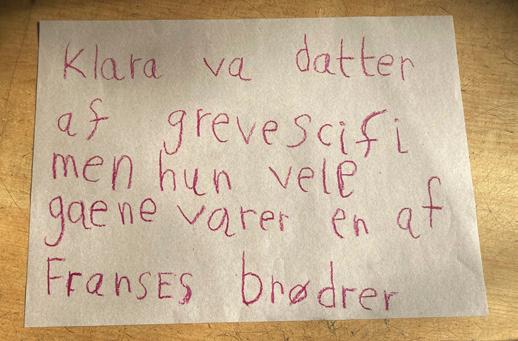 Klara va datter
af grevescifi
men hun vele
gaene varer en af
FransES brødrer